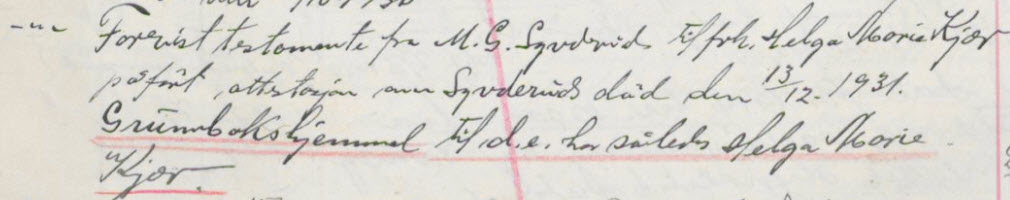 -"- Forevist testamente fra M. G. Syvderud til frk. Helga Marie Kjær
påført attestasjon om Syvderuds død den 13/12-1931.
Grunnbokshjemmel til d.e. har således Helga Marie
Kjær.